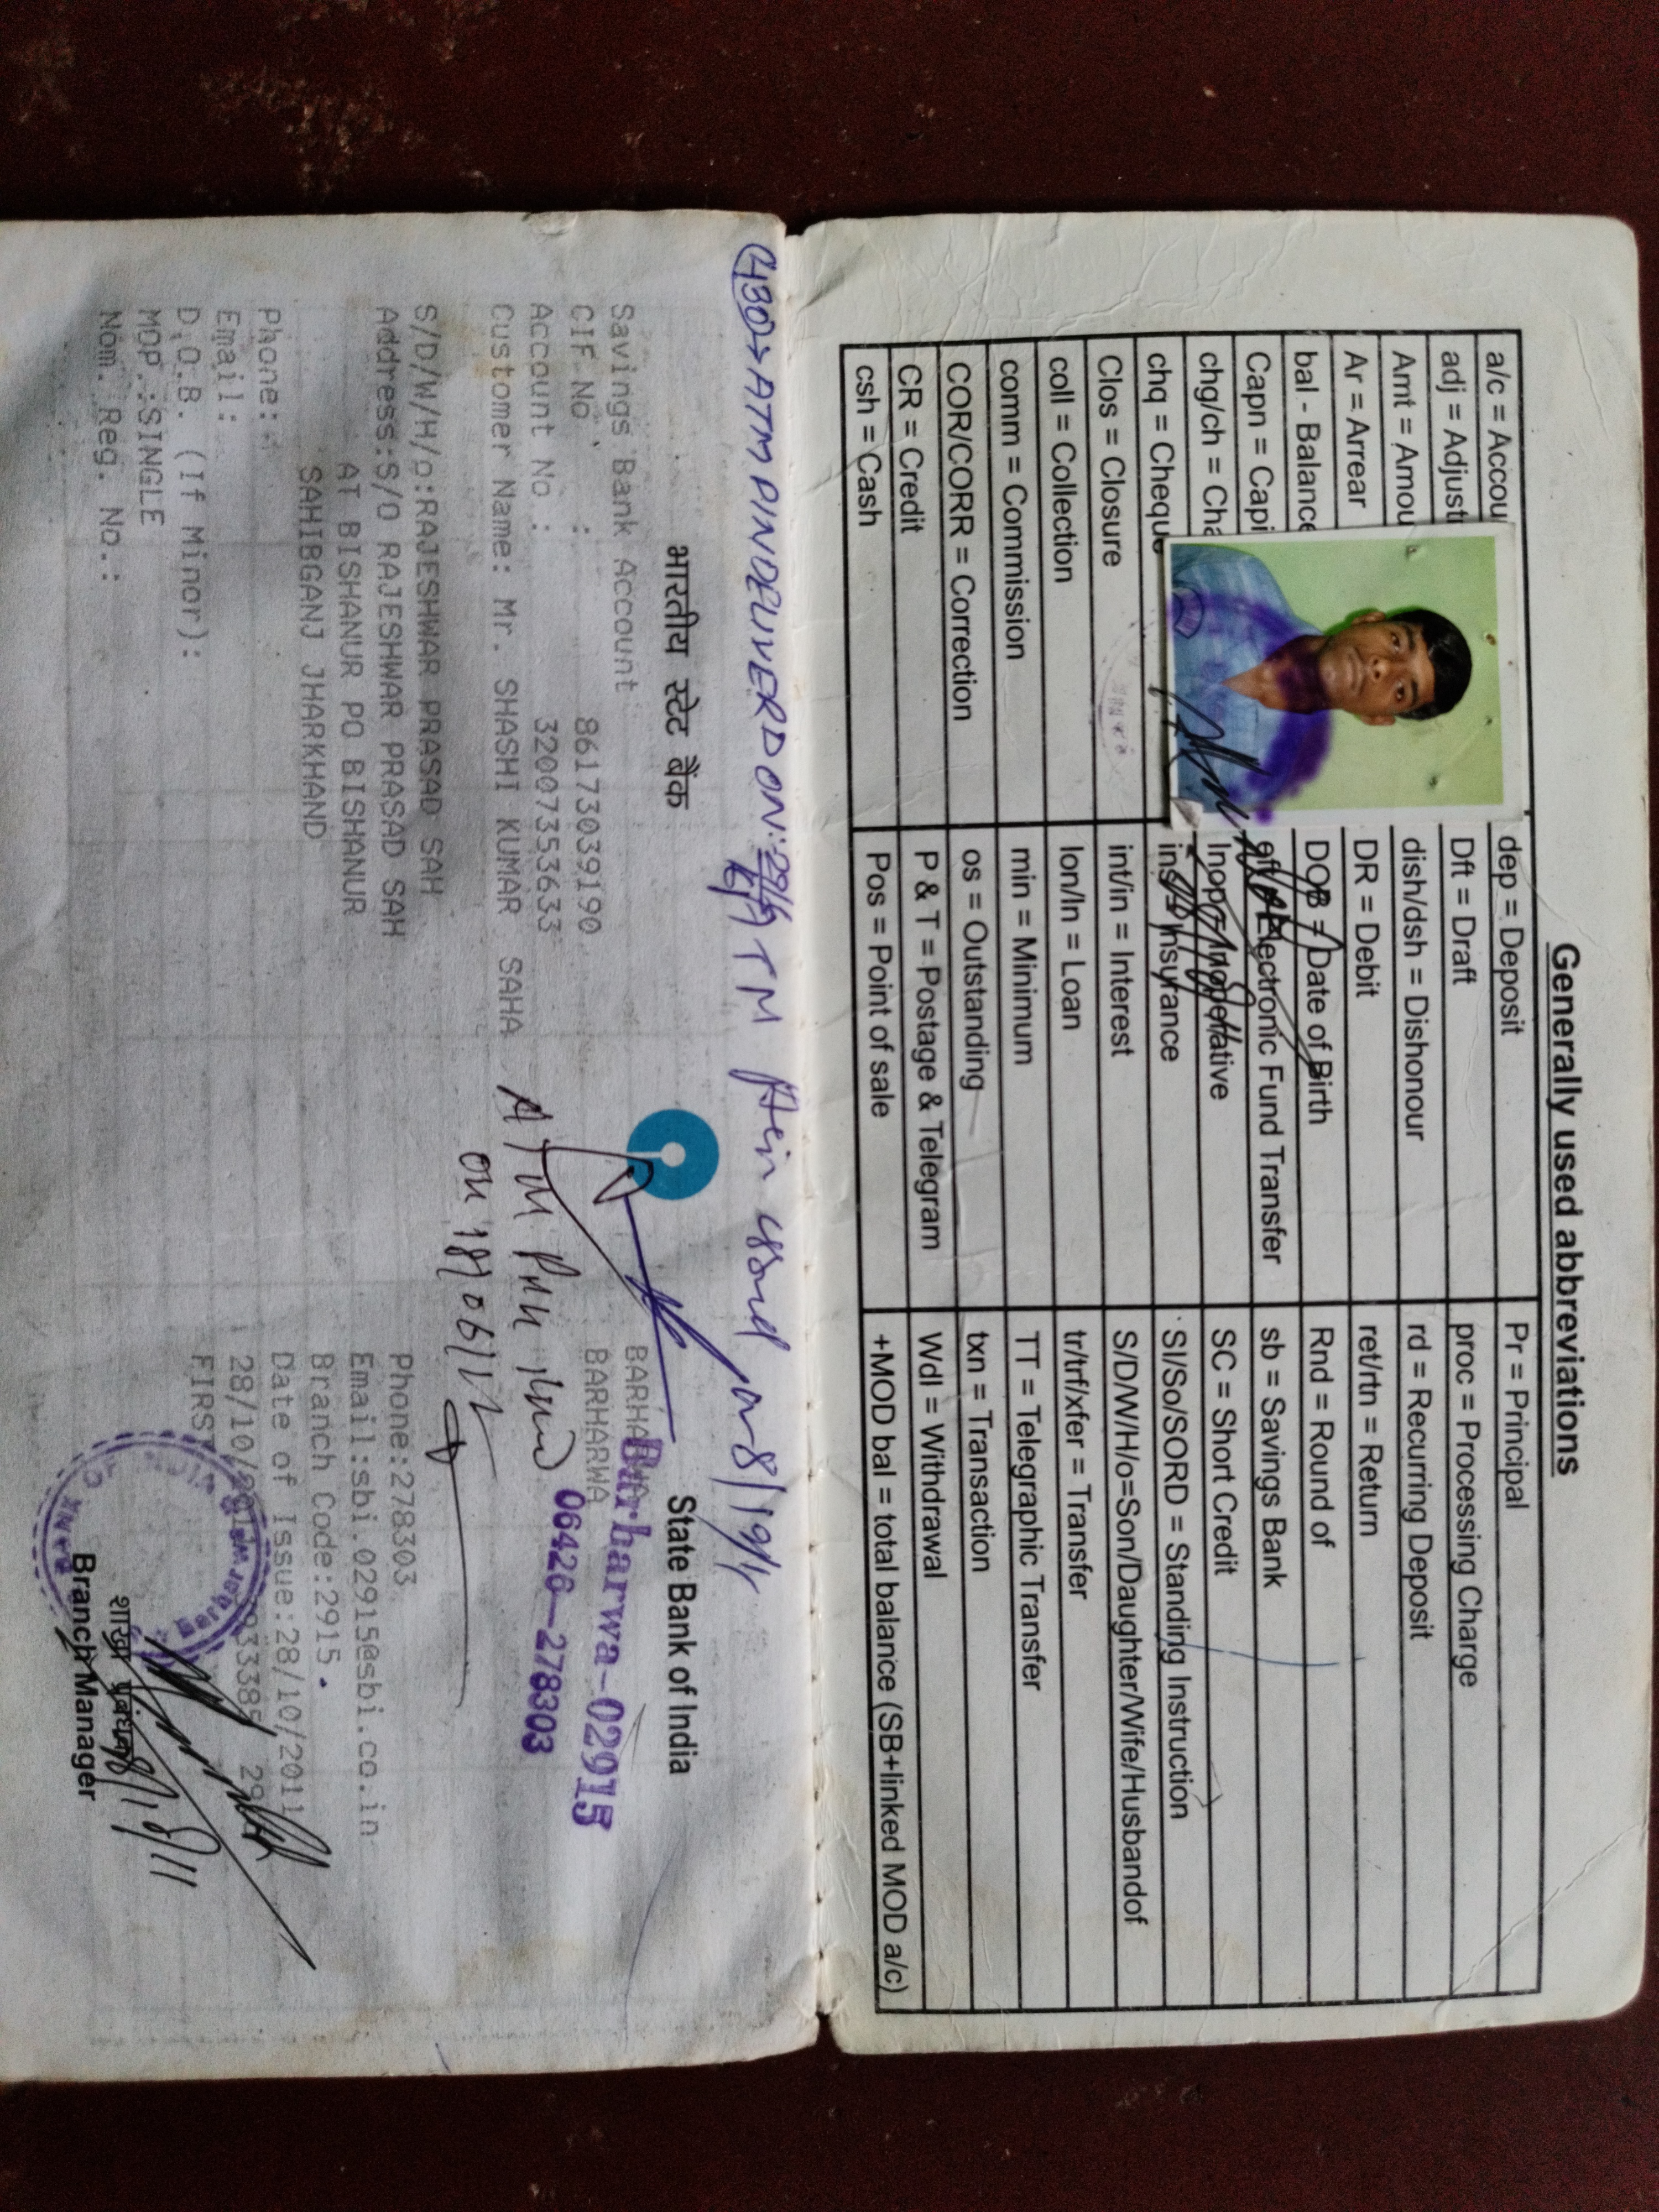 Generally used abbreviations
a/c = Accou
dep = Deposit
Pr = Principal
adj = Adjust
Dft = Draft
proc = Processing Charge
Amt = Amou
dish/dsh = Dishonour
rd = Recurring Deposit
Ar = Arrear
DR = Debit
ret/rtn = Return
bal - Balance
DOB = Date of Birth
Rnd = Round of
Capn = Capi
eft = Electronic Fund Transfer
sb = Savings Bank
chg/ch = Cha
Inop = Inoperative
SC = Short Credit
chq = Chequ
ins = Insurance
SI/So/SORD = Standing Instruction
Clos = Closure
int/in = Interest
S/D/W/H/o=Son/Daughter/Wife/Husbandof
coll = Collection
lon/ln = Loan
tr/trf/xfer = Transfer
comm = Commission
min = Minimum
TT = Telegraphic Transfer
COR/CORR = Correction
os = Outstanding
txn = Transaction
CR = Credit
P & T = Postage & Telegram
Wdl = Withdrawal
csh = Cash
Pos = Point of sale
+MOD bal = total balance (SB+linked MOD a/c)
ATM PIN DELIVERD ON:
ATM issued on 8/
भारतीय स्टेट बैंक
State Bank of India
Savings Bank Account
BARHARWA
CIF No : 86173039190
BARHARWA
Barharwa-02915
Account No : 32007353633
06426-278303
Customer Name: Mr. SHASHI KUMAR SAHA
ATM
on 18/06/
S/D/W/H/o:RAJESHWAR PRASAD SAH
Phone:278303
Address:S/O RAJESHWAR PRASAD SAH
Email:sbi.02915@sbi.co.in
AT BISHANUR PO BISHANUR
Branch Code:2915
SAHIBGANJ JHARKHAND
Date of Issue:28/10/2011
Phone:
28/10/
Email:
FIRST
D.O.B. (If Minor):
MOP.:SINGLE
शाखा प्रबंधक
Nom. Reg. No.:
Branch Manager